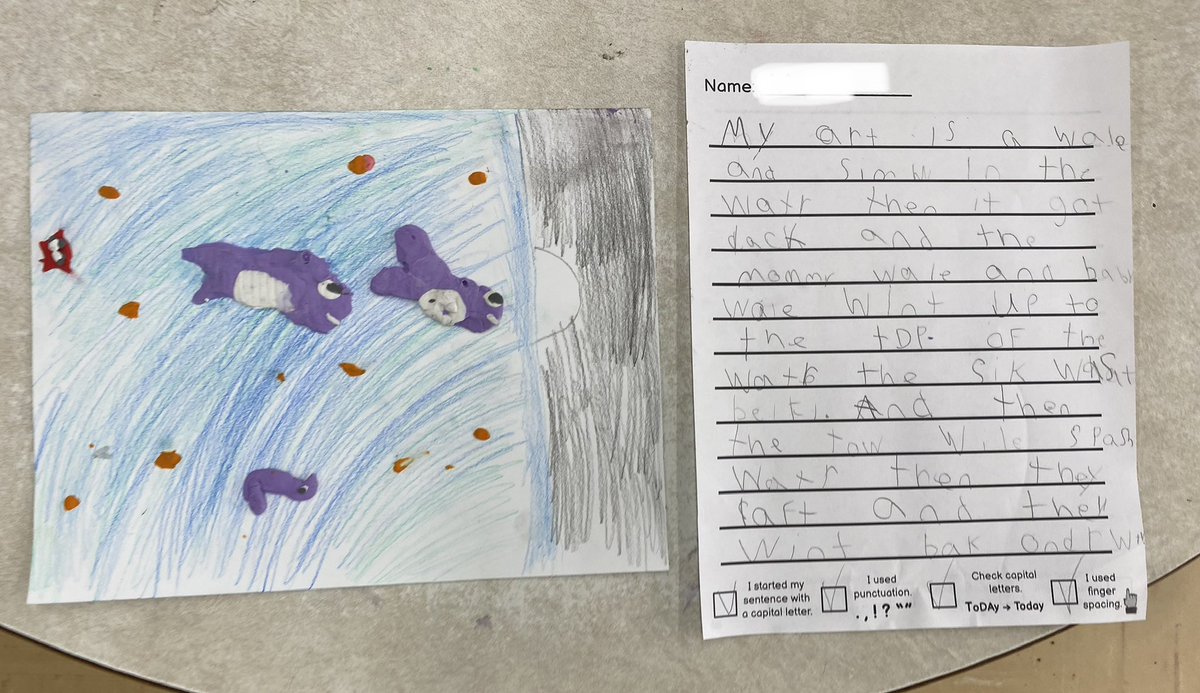 Name
My art is a wale
and Simw In the
watr then it got
dack and the
mommy wale and baby
wale Wint up to
the top. OF the
Watr the Sik was
And then
the tow Wile Spash
Watr then they
faft and they
Wint bak ondrw
I started my
sentence with
a capital letter.
I used
punctuation.
. , ! ? " "
Check capital
letters.
ToDAy → Today
I used
finger
spacing.